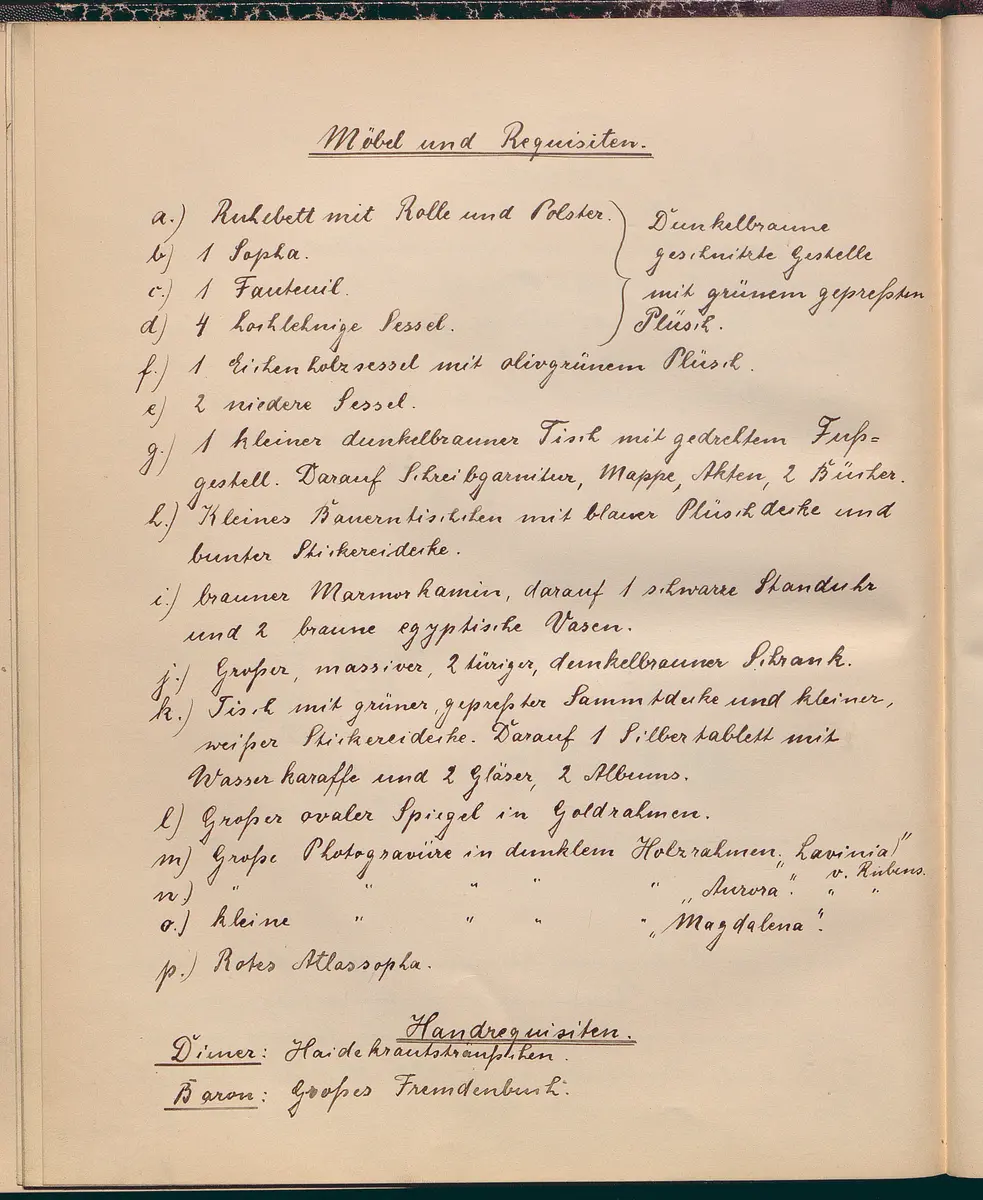 Möbel und Requisiten.
a.) Ruhebett mit Rolle und Polster.
b) 1 Sopha.
c.) 1 Fauteuil.
d) 4 hochlehnige Sessel.
Dunkelbraune
geschnitzte Gestelle
mit grünem gepreßten
Plüsch.
f.) 1 Eichenholzsessel mit olivgrünem Plüsch.
e) 2 niedere Sessel.
g.) 1 kleiner dunkelbrauner Tisch mit gedrehtem Fuß=
gestell. Darauf Schreibgarnitur, Mappe, Akten, 2 Bücher.
h.) Kleines Bauerntischchen mit blauer Plüschdecke und
bunter Stickereidecke.
i.) brauner Marmorkamin, darauf 1 schwarze Standuhr
und 2 braune egyptische Vasen.
j.) Großer, massiver, 2türiger, dunkelbrauner Schrank.
k.) Tisch mit grüner, gepreßter Sammtdecke und kleiner,
weißer Stickereidecke. Darauf 1 Silbertablett mit
Wasserkaraffe und 2 Gläser, 2 Albums.
l) Großer ovaler Spiegel in Goldrahmen.
m) Große Photogravüre in dunklem Holzrahmen. „Lavinia"
n.) " " " " " „Aurora". " v. Rubens. "
o.) kleine " " " " „Magdalena".
p.) Rotes Atlassopha.
Handrequisiten.
Diener: Haidekrautsträußchen.
Baron: Großes Fremdenbuch.